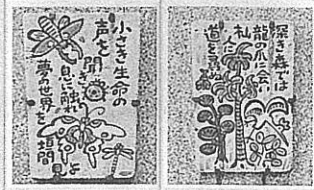 小さき生命の
声を聞き
息に触れ
夢の世界を垣間よ
深き森では
龍の爪に会い
札
道を